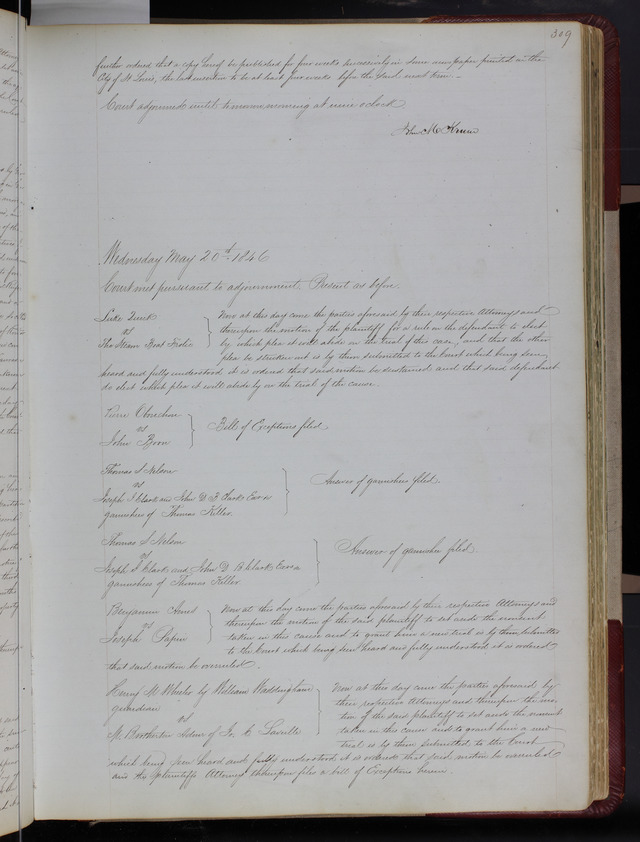 309
further ordered that a copy hereof be published for four weeks successively in some newspaper printed in the
City of St Louis, the last insertion to be at least four weeks before the said next term.
Court adjourned until tomorrow morning at nine o'clock
John M Krum
Wednesday May 20th 1846
Court met pursuant to adjournment. Present as before.
Luke
vs
The Steam Boat
Now at this day came the parties aforesaid by their respective Attorneys and
thereupon the motion of the plaintiff for a rule on the defendant to elect
by which plea it will abide on the trial of this case, and that the other
plea be stricken out is by them submitted to the Court which being seen
heard and fully understood it is ordered that said motion be sustained and that said defendant
do elect which plea it will abide by on the trial of the cause.
Pierre
vs
John Boon
Bill of Exceptions filed
Thomas S Nelson
vs
Joseph S Clark and John D F Clark Exors
garnishees of Thomas Keller
Answer of garnishees filed.
Thomas S Nelson
vs
Joseph S Clark and John D Clark Exors
garnishees of Thomas Keller
Answer of garnishee filed.
Benjamin Ames
vs
Joseph Papin
Now at this day came the parties aforesaid by their respective Attorneys and
thereupon the motion of the said plaintiff to set aside the nonsuit
taken in this cause and to grant him a new trial is by them submitted
to the Court which being seen heard and fully understood it is ordered
that said motion be overruled.
Henry M Wheeler by William Waddingham
guardian
vs
M Brotherton Admr of Jo. C Laveille
Now at this day came the parties aforesaid by
their respective Attorneys and thereupon the mo-
tion of the said plaintiff to set aside the nonsuit
taken in this cause and to grant him a new
trial is by them submitted to the Court
which being seen heard and fully understood it is ordered that said motion be overruled
and the plaintiffs Attorney thereupon files a bill of Exceptions herein.